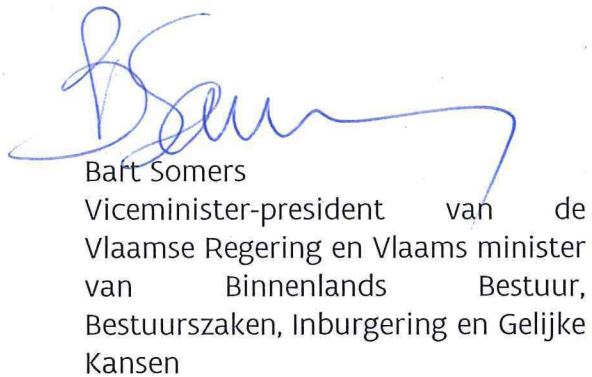 BSomers
Bart Somers
Viceminister-president van de
Vlaamse Regering en Vlaams minister
van Binnenlands Bestuur,
Bestuurszaken, Inburgering en Gelijke
Kansen